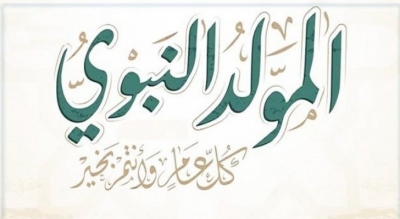 المَوْلِدُ النَّبَوِي
كُلُّ عَامٍ وَأَنْتُمْ بِخَيْرٍ